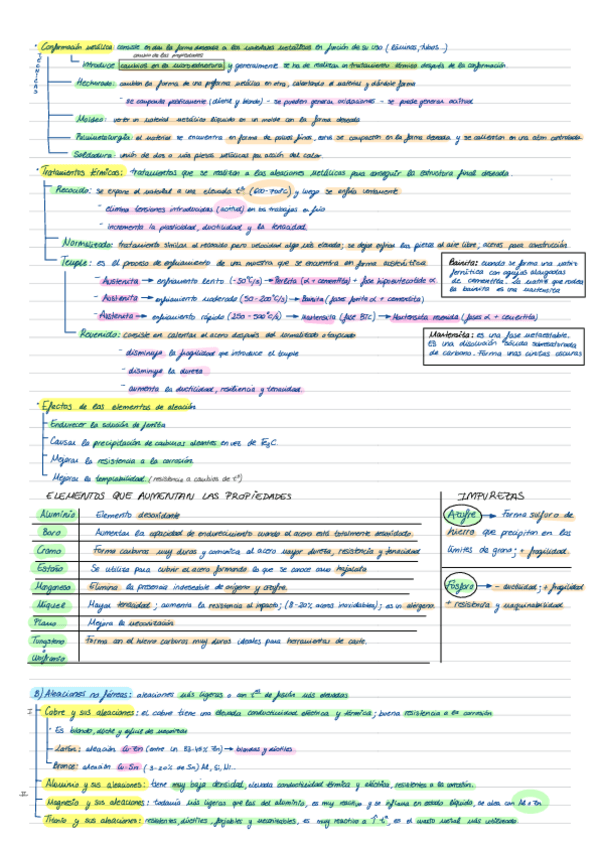 · Conformación metálica: consiste en dar la forma deseada a los materiales metálicos en función de su uso (láminas, tubos...)
Técnicas
Introduce cambios en la microestructura y generalmente se ha de realizar un tratamiento térmico después de la conformación.
- se composta plásticamente (dúctil y blando) - se pueden generar oxidaciones - se puede generar acritud
Moldeo: verter un material metálico líquido en un molde con la forma deseada
Pulvimetalurgia: el material se encuentra en forma de polvos finos, estos se compactan en la forma deseada y se calientan en una atm controlada
Soldadura: unión de dos o más piezas metálicas por acción del calor.
· Tratamientos térmicos: tratamientos que se realizan a las aleaciones metálicas para conseguir la estructura final deseada.
Recocido: se expone el material a una elevada tª (600-700ºC) y luego se enfría lentamente
- elimina tensiones introducidas (acritud) en los trabajos en frío
- incrementa la plasticidad, ductilidad y la tenacidad.
Normalizado: tratamiento similar al recocido pero velocidad algo más elevada; se dejan enfriar las piezas al aire libre, aceros para construcción.
Temple: es el proceso de enfriamiento de una muestra que se encuentra en forma austenítica
- Austenita → enfriamiento lento (-50ºC/s) → Perlita (α + cementita) + fase hipoeutectoide α
- Austenita → enfriamiento moderado (50-200ºC/s) → Bainita (fases ferrita α + cementita)
- Austenita → enfriamiento rápido (250-500ºC/s) → Martensita (fase BTC) → Martensita revenida (fases α + cementita)
Bainita: cuando se forma una matriz
ferrítica con agujas alargadas
de cementita. La matriz que rodea
la bainita es una martensita
Revenido: consiste en calentar el acero después del normalizado o templado
- disminuye la fragilidad que introduce el temple
- disminuye la dureza
- aumenta la ductilidad, resiliencia y tenacidad.
Martensita: es una fase metaestable.
Es una disolución sólida sobresaturada
de carbono. Forma unas cintas oscuras
· Efectos de los elementos de aleación
- Endurecer la solución de ferrita
- Causar la precipitación de carburos aleantes en vez de Fe3C.
- Mejorar la resistencia a la corrosión
- Mejorar la templabilidad (resistencia a cambios de tª)
ELEMENTOS QUE AUMENTAN LAS PROPIEDADES
Aluminio Elemento desoxidante
Boro Aumentar la capacidad de endurecimiento cuando el acero está totalmente desoxidado
Cromo Forma carburos muy duros y comunica al acero mayor dureza, resistencia y tenacidad
Estaño Se utiliza para cubrir el acero formando lo que se conoce como hojalata
Manganeso Elimina la presencia indeseable de oxígeno y azufre.
Níquel Mayor tenacidad; aumenta la resistencia al impacto; (8-20% aceros inoxidables); es un alérgeno
Plomo Mejora la mecanización
Tungsteno Forma con el hierro carburos muy duros ideales para herramientas de corte.
Wolframio
IMPUREZAS
Azufre → Forma sulfuro de
hierro que precipitan en los
límites de grano; + fragilidad.
Fósforo → - ductilidad; + fragilidad
+ resistencia y maquinabilidad
B) Aleaciones no férreas: aleaciones más ligeras o con tas de fusión más elevadas
I - Cobre y sus aleaciones: el cobre tiene una elevada conductividad eléctrica y térmica; buena resistencia a la corrosión
- Es blando, dúctil y difícil de mecanizar
- Latón: aleación Cu-Zn (entre un 33-45% Zn) → blandas y dúctiles.
- Bronce: aleación Cu-Sn (3-20% de Sn) Al, Si, Ni...
II - Aluminio y sus aleaciones: tiene muy baja densidad, elevada conductividad térmica y eléctrica, resistentes a la corrosión.
- Magnesio y sus aleaciones: todavía más ligeras que las del aluminio, es muy reactivo y se inflama en estado líquido, se alea con Al o Zn.
- Titanio y sus aleaciones: resistentes, dúctiles, forjables y mecanizables, es muy reactivo a ↑ tª, es el metal más utilizado.